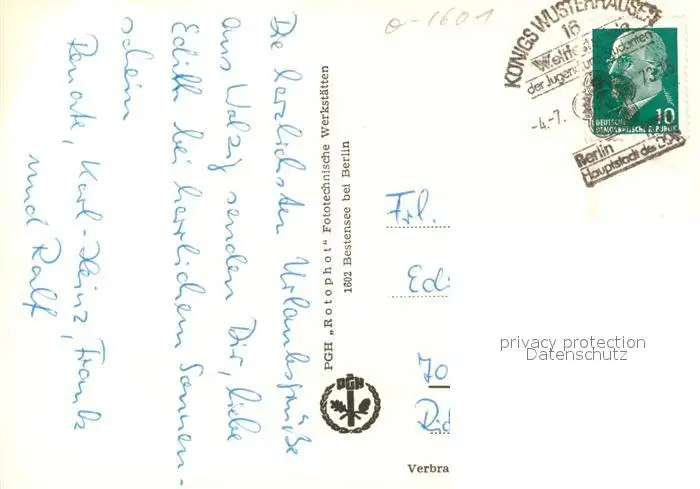 Die herzlichsten Urlaubsgrüße
aus Wolzig senden Dir, liebe
Edith bei herrlichem Sonnen-
schein
Renate, Karl-Heinz, Frank
und Ralf
PGH „Rotophot“ Fototechnische Werkstätten
1602 Bestensee bei Berlin
PGH
o-1601
KÖNIGS WUSTERHAUSEN
16
der Jugend
-4.-7.
73-
Berlin
Hauptstadt der DDR
10
DEUTSCHE
DEMOKRATISCHE REPUBLIK
Frl.
Edi
70
privacy protection
Datenschutz
Verbra